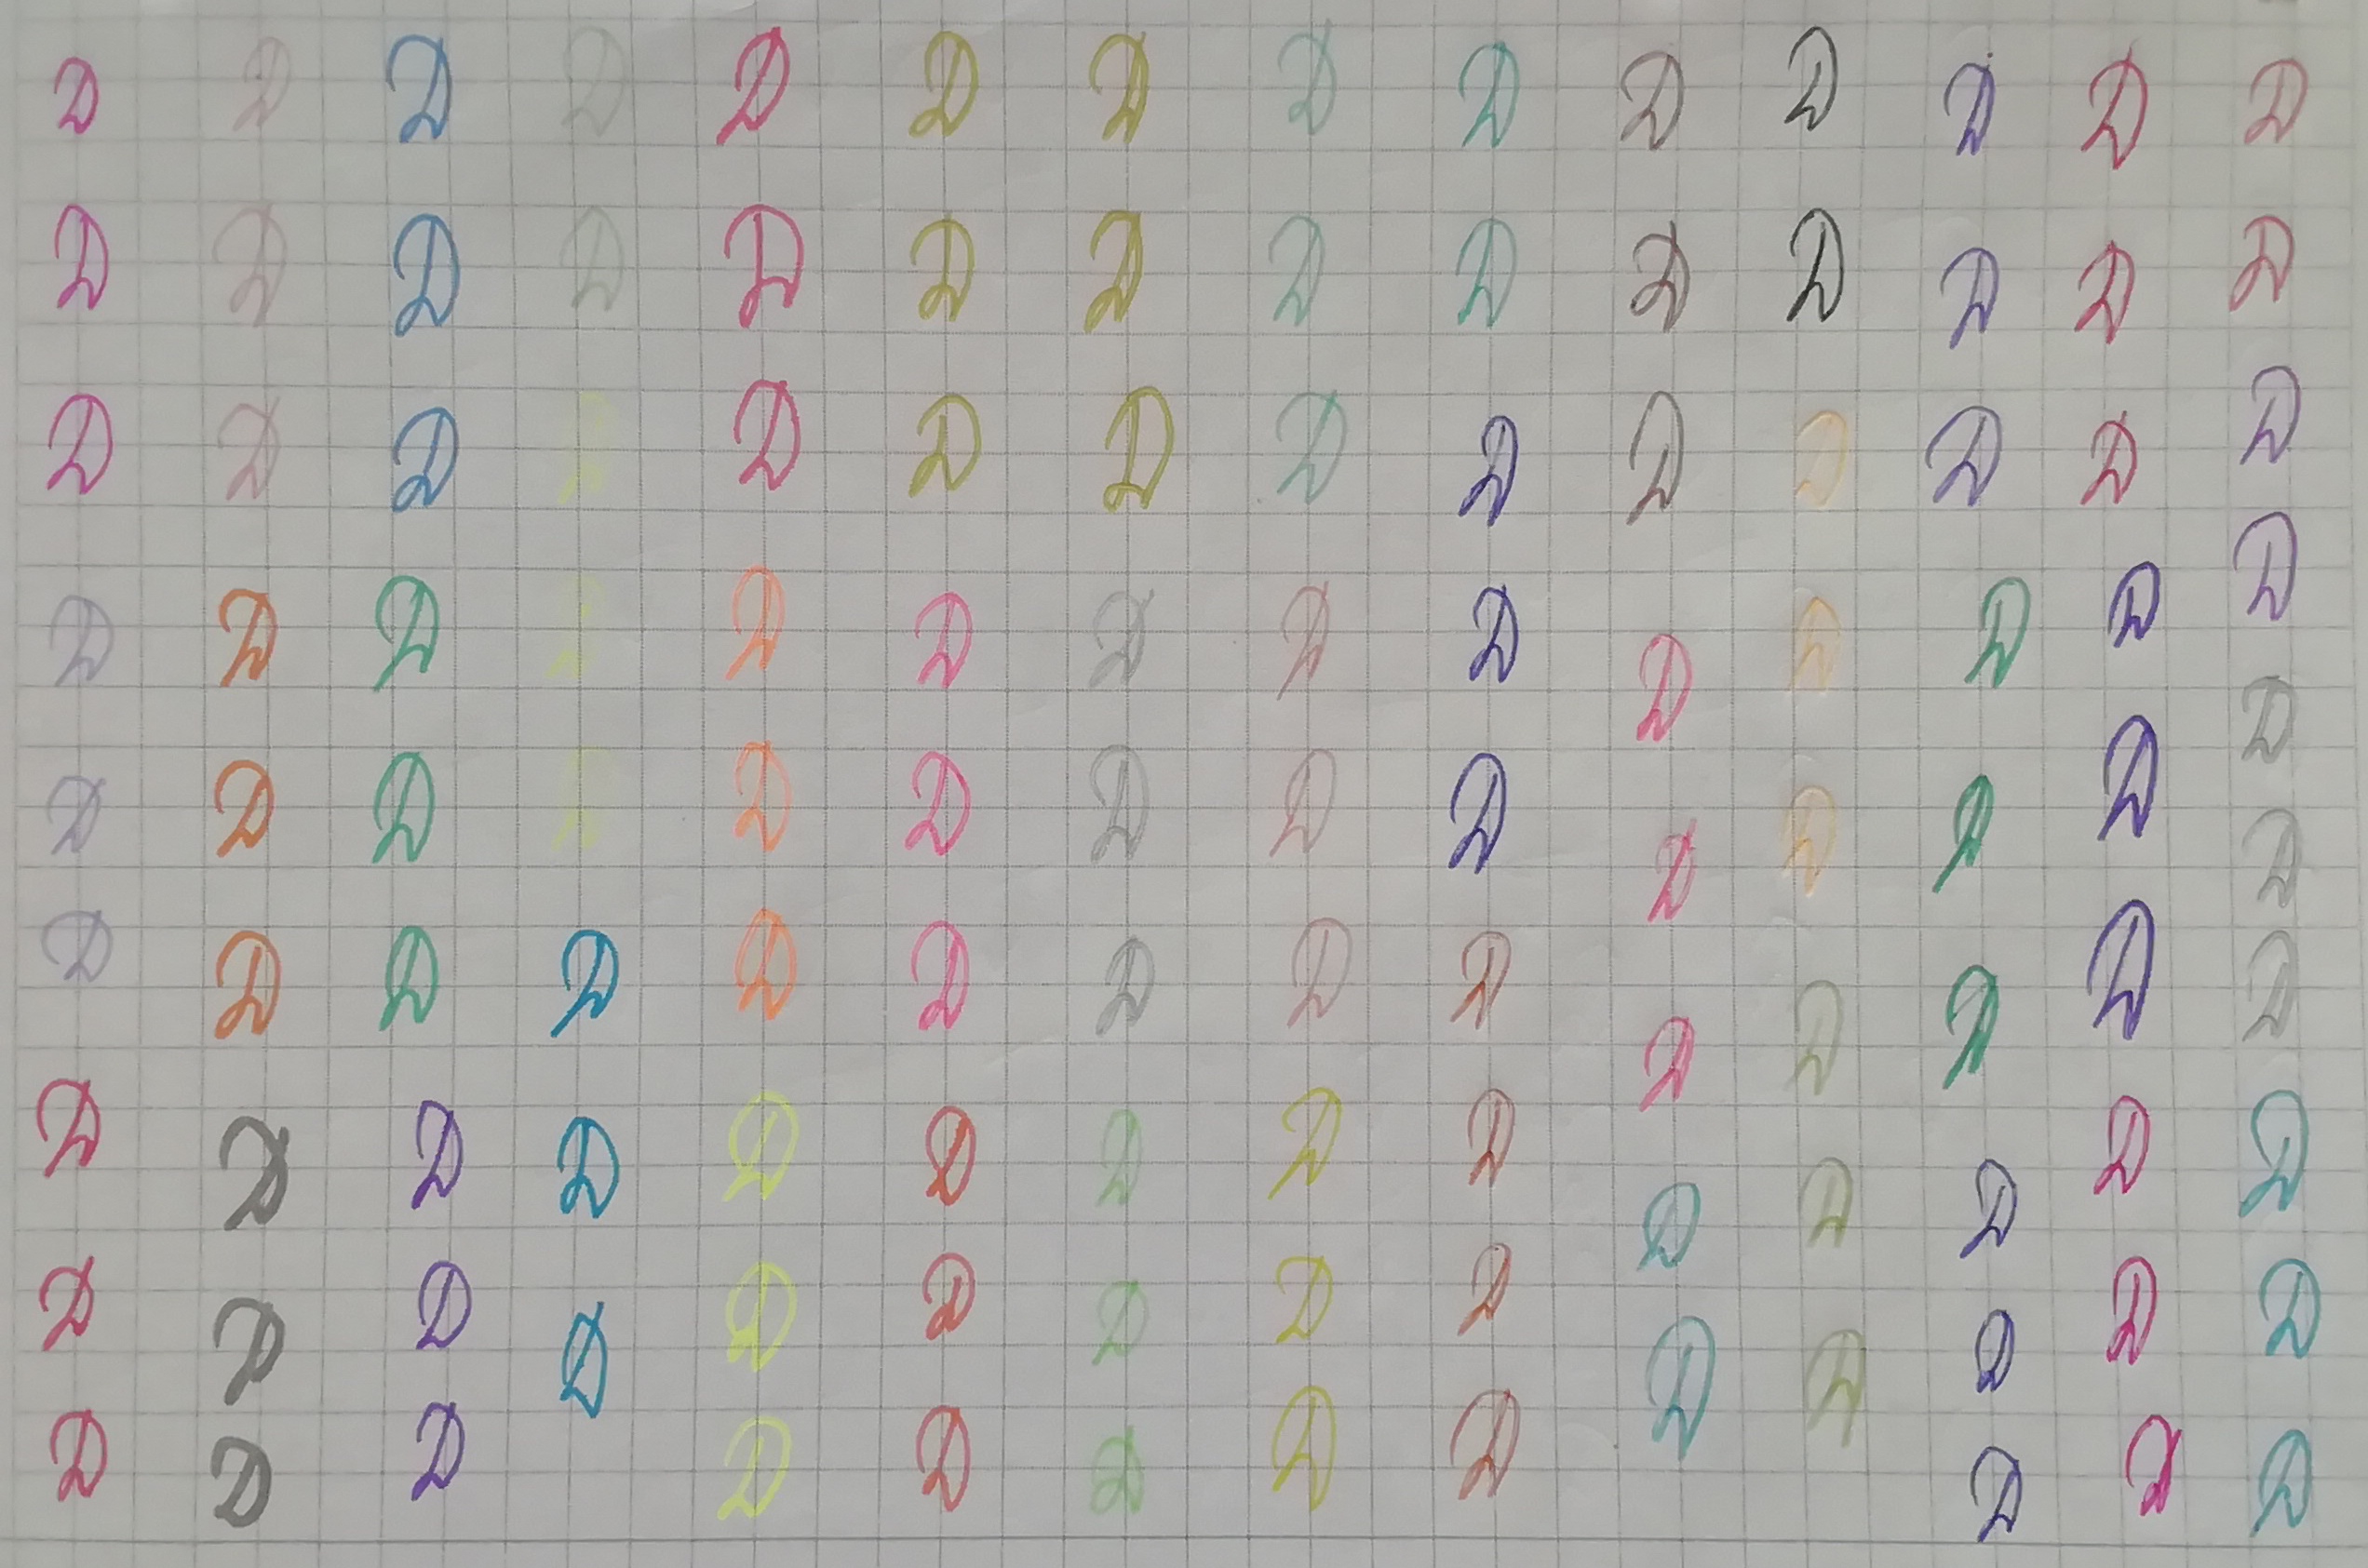 D D D D D D D D D D D D D D
D D D D D D D D D D D D D D
D D D D D D D D D D D D D D
D D D D D D D D D D D D D D
D D D D D D D D D D D D D D
D D D D D D D D D D D D D D
D D D D D D D D D D D D D D
D D D D D D D D D D D D D D
D D D D D D D D D D D D